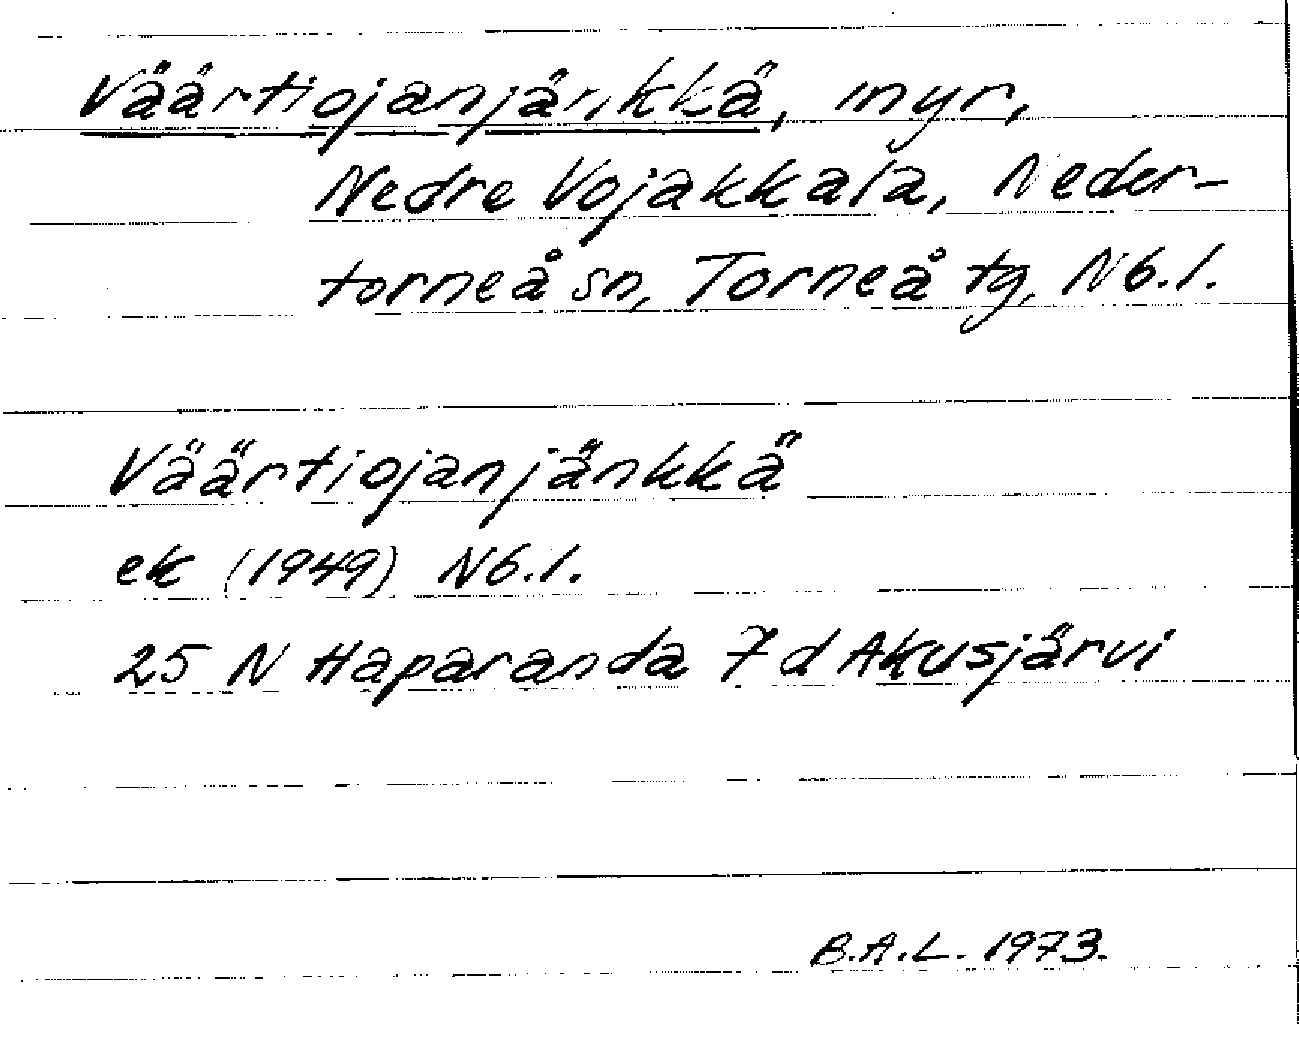 Väärtiojanjänkkä, myr,
Nedre Vojakkala, Neder-
torneå sn, Torneå tg, Nb.l.
Väärtiojanjänkkä
ek (1949) Nb.l.
25 N Haparanda 7 d Akusjärvi
B.A.L. 1973.